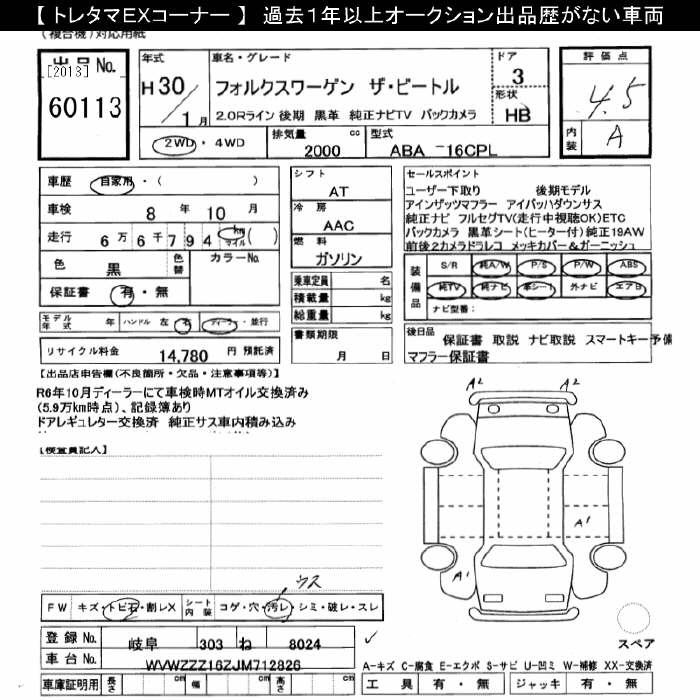 【 トレタマEXコーナー 】 過去1年以上オークション出品歴がない車両
(複合機)対応用紙
出品 No.
[2013]
60113
年式
H30/1月
車名・グレード
フォルクスワーゲン ザ・ビートル
2.0Rライン 後期 黒革 純正ナビTV バックカメラ
ドア
3
形状
HB
2WD・4WD
排気量 cc
2000
型式
ABA -16CPL
評価点
4.5
内装
A
車歴 自家用・( )
車検 8年 10月
走行 6万6千794 km マイル ( )
色 黒 色替 カラーNo.
保証書 有・無
モデル年式 年 ハンドル 左 右 ディーラー・並行
リサイクル料金 14,780 円 預託済
シフト
AT
冷房
AAC
燃料
ガソリン
乗車定員 名
積載量 kg
総重量 kg
書類期限
月 日
セールスポイント
ユーザー下取り 後期モデル
アインザッツマフラー アイバッハダウンサス
純正ナビ フルセグTV(走行中視聴OK)ETC
バックカメラ 黒革シート(ヒーター付)純正19AW
前後2カメラドラレコ メッキカバー&ガーニッシュ
装備品
S/R 純A/W P/S P/W ABS
純TV 純ナビ 革シート 外ナビ エアB
ナビ型番:
後日品
保証書 取説 ナビ取説 スマートキー予備
マフラー保証書
【出品店申告欄(不良箇所・欠品・注意事項等)】
R6年10月ディーラーにて車検時MTオイル交換済み
(5.9万km時点)、記録簿あり
ドアレギュレター交換済 純正サス車内積み込み
【検査員記入】
A2 A2
A1
A1
ウス
FW キズ・トビ石・割レX シート内装 コゲ・穴・汚レ・シミ・破レ・スレ
登録 No. 岐阜 303 ね 8024
車台 No. WVWZZZ16ZJM712826
車庫証明用 長さ cm 幅 cm 高さ cm
スペア
A-キズ C-腐食 E-エクボ S-サビ U-凹ミ W-補修 XX-交換済
工具 有・無 ジャッキ 有・無